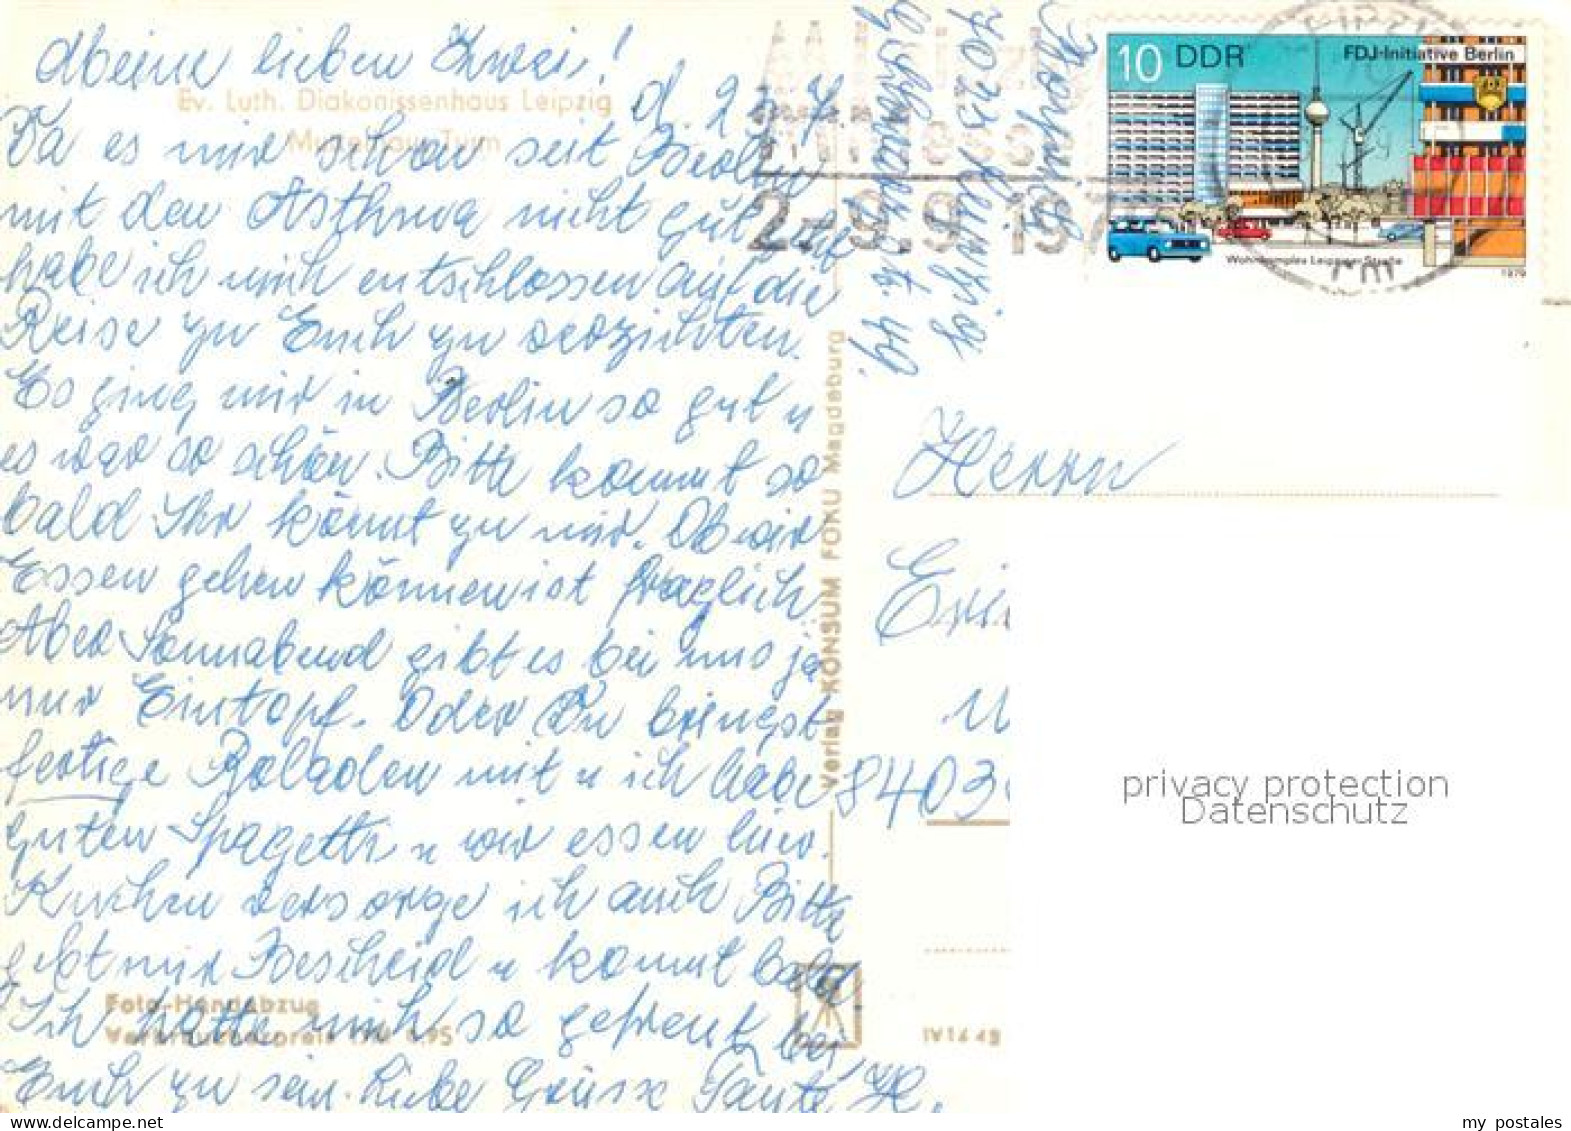 Meine lieben Zwei!
Ev. Luth. Diakonissenhaus Leipzig
Mutterhaus-Turm
d. 25.7.
Da es mir schon seit Berlin
mit dem Asthma nicht gut geht
habe ich mich entschlossen auf die
Reise zu Euch zu verzichten.
Es ging mir in Berlin so gut u
es war so schön. Bitte kommt so
bald Ihr könnt zu mir. Ob wir
Essen gehen können ist fraglich
Aber Sonnabend gibt es bei uns ja
nur Eintopf. Oder Du bringst
fertige Rouladen mit u ich habe
guten Spagetti u wir essen hier.
Kuchen versorge ich auch Bitte
gebt mir Bescheid u kommt bald
Ich hatte mich so gefreut bei
Euch zu sein. Liebe Grüsse Tante H.
Foto-Handabzug
Verbraucherpreis DM 0,95
Verlag KONSUM FOKU Magdeburg
IV 14 48
7025 Leipzig
10 DDR
FDJ-Initiative Berlin
Wohnkomplex Leipziger Straße
1979
2.-9.9.197
Herrn
8403
privacy protection
Datenschutz
my postales